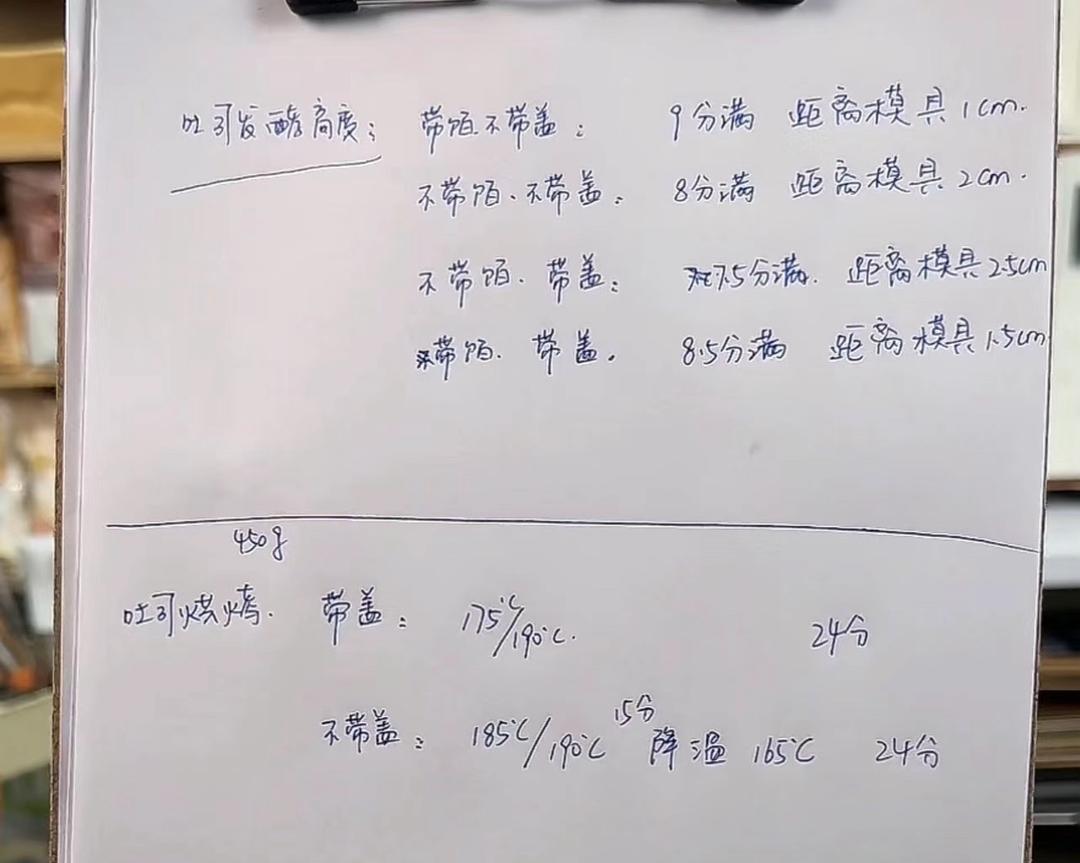 吐司发酵高度: 带馅不带盖: 9分满 距离模具1cm.
不带馅.不带盖. 8分满 距离模具2cm.
不带馅. 带盖: 7.5分满. 距离模具2.5cm
带馅. 带盖. 8.5分满 距离模具1.5cm
450g
吐司烘烤. 带盖: 175℃/190℃. 24分
不带盖: 185℃/190℃ 15分 降温 165℃ 24分